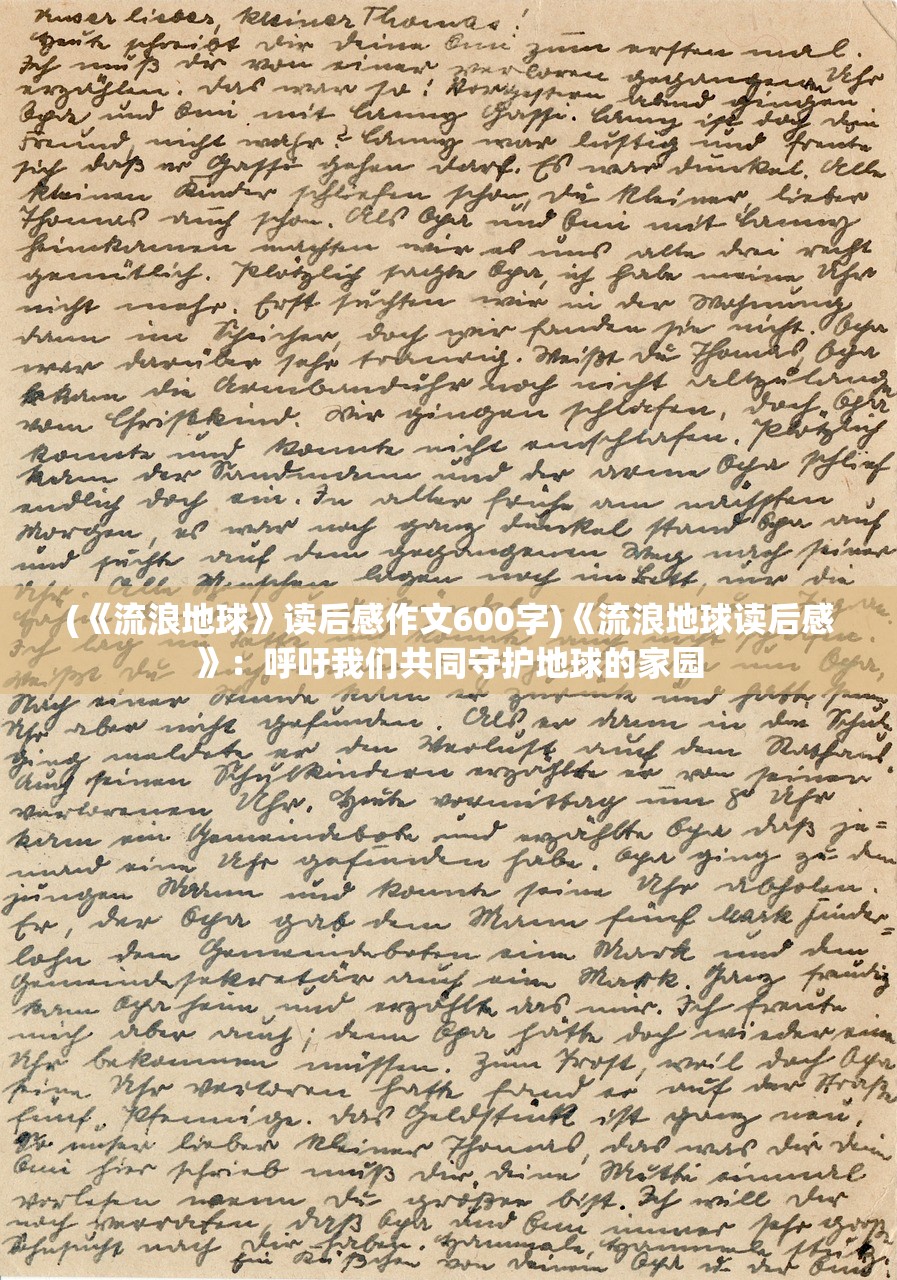 Unser lieber, kleiner Thomas!
Heute schreibt dir deine Omi zum ersten mal.
Ich muß dir von einer verloren gegangenen Uhr
erzählen. Das war so: Vorgestern abend gingen
Opa und Omi mit Lanny Gassi. Lanny ist doch dein
Freund, nicht wahr? Lanny war lustig und freute
sich daß er Gassi gehen darf. Es war dunkel. Alle
kleinen Kinder schliefen schon, du kleiner, lieber
Thomas auch schon. Als Opa und Omi mit Lanny
heimkamen machten wir es uns alle drei recht
gemütlich. Plötzlich sagte Opa, ich habe meine Uhr
nicht mehr. Erst suchten wir in der Wohnung
dann im Speicher, doch wir fanden sie nicht. Opa
war darüber sehr traurig. Weißt du Thomas, Opa
bekam die Armbanduhr noch nicht allzulange
vom Christkind. Wir gingen schlafen, doch Opa
konnte und konnte nicht einschlafen. Plötzlich
kam der Sandmann und der arme Opa schlief
endlich doch ein. In aller frühe am nächsten
Morgen, es war noch ganz dunkel stand Opa auf
und suchte auf dem gegangenen Weg nach seiner
Uhr. Alle Menschen lagen noch im Bett, nur die
(《流浪地球》读后感作文600字)《流浪地球读后感
》：呼吁我们共同守护地球的家园
Ich lag im
Weißt du um Opa.
Nach einer Stunde kam er zurück und hatte seine
Uhr aber nicht gefunden. Als er dann in die Schule
ging meldete er den Verlust auf dem Rathaus.
Auch seinen Schulkindern erzählte er von seiner
verlorenen Uhr. Heute vormittag um 8° Uhr
kam ein Gemeindebote und erzählte Opa daß je=
mand eine Uhr gefunden habe. Opa ging zu dem
jungen Mann und konnte seine Uhr abholen.
Er, der Opa gab dem Mann fünf Mark Finder=
lohn dem Gemeindeboten eine Mark und dem
Gemeindesekretär auch eine Mark. Ganz freudig
kam Opa heim und erzählte das mir. Ich freute
mich aber auch; denn Opa hätte doch wieder eine
Uhr bekommen müssen. Zum Trost, weil doch Opa
seine Uhr verloren hatte fand er auf der Straße
fünf Pfennige. Das Geldstück ist ganz neu.
So unser lieber kleiner Thomas, das was dir deine
Omi hier schrieb muß dir deine Mutti einmal
vorlesen wenn du größer bist. Ich will dir
noch verraten, daß Opa und Omi immer sehr große
Sehnsucht nach dir haben.
Ein Küßchen von deinem Opa u. der Omi